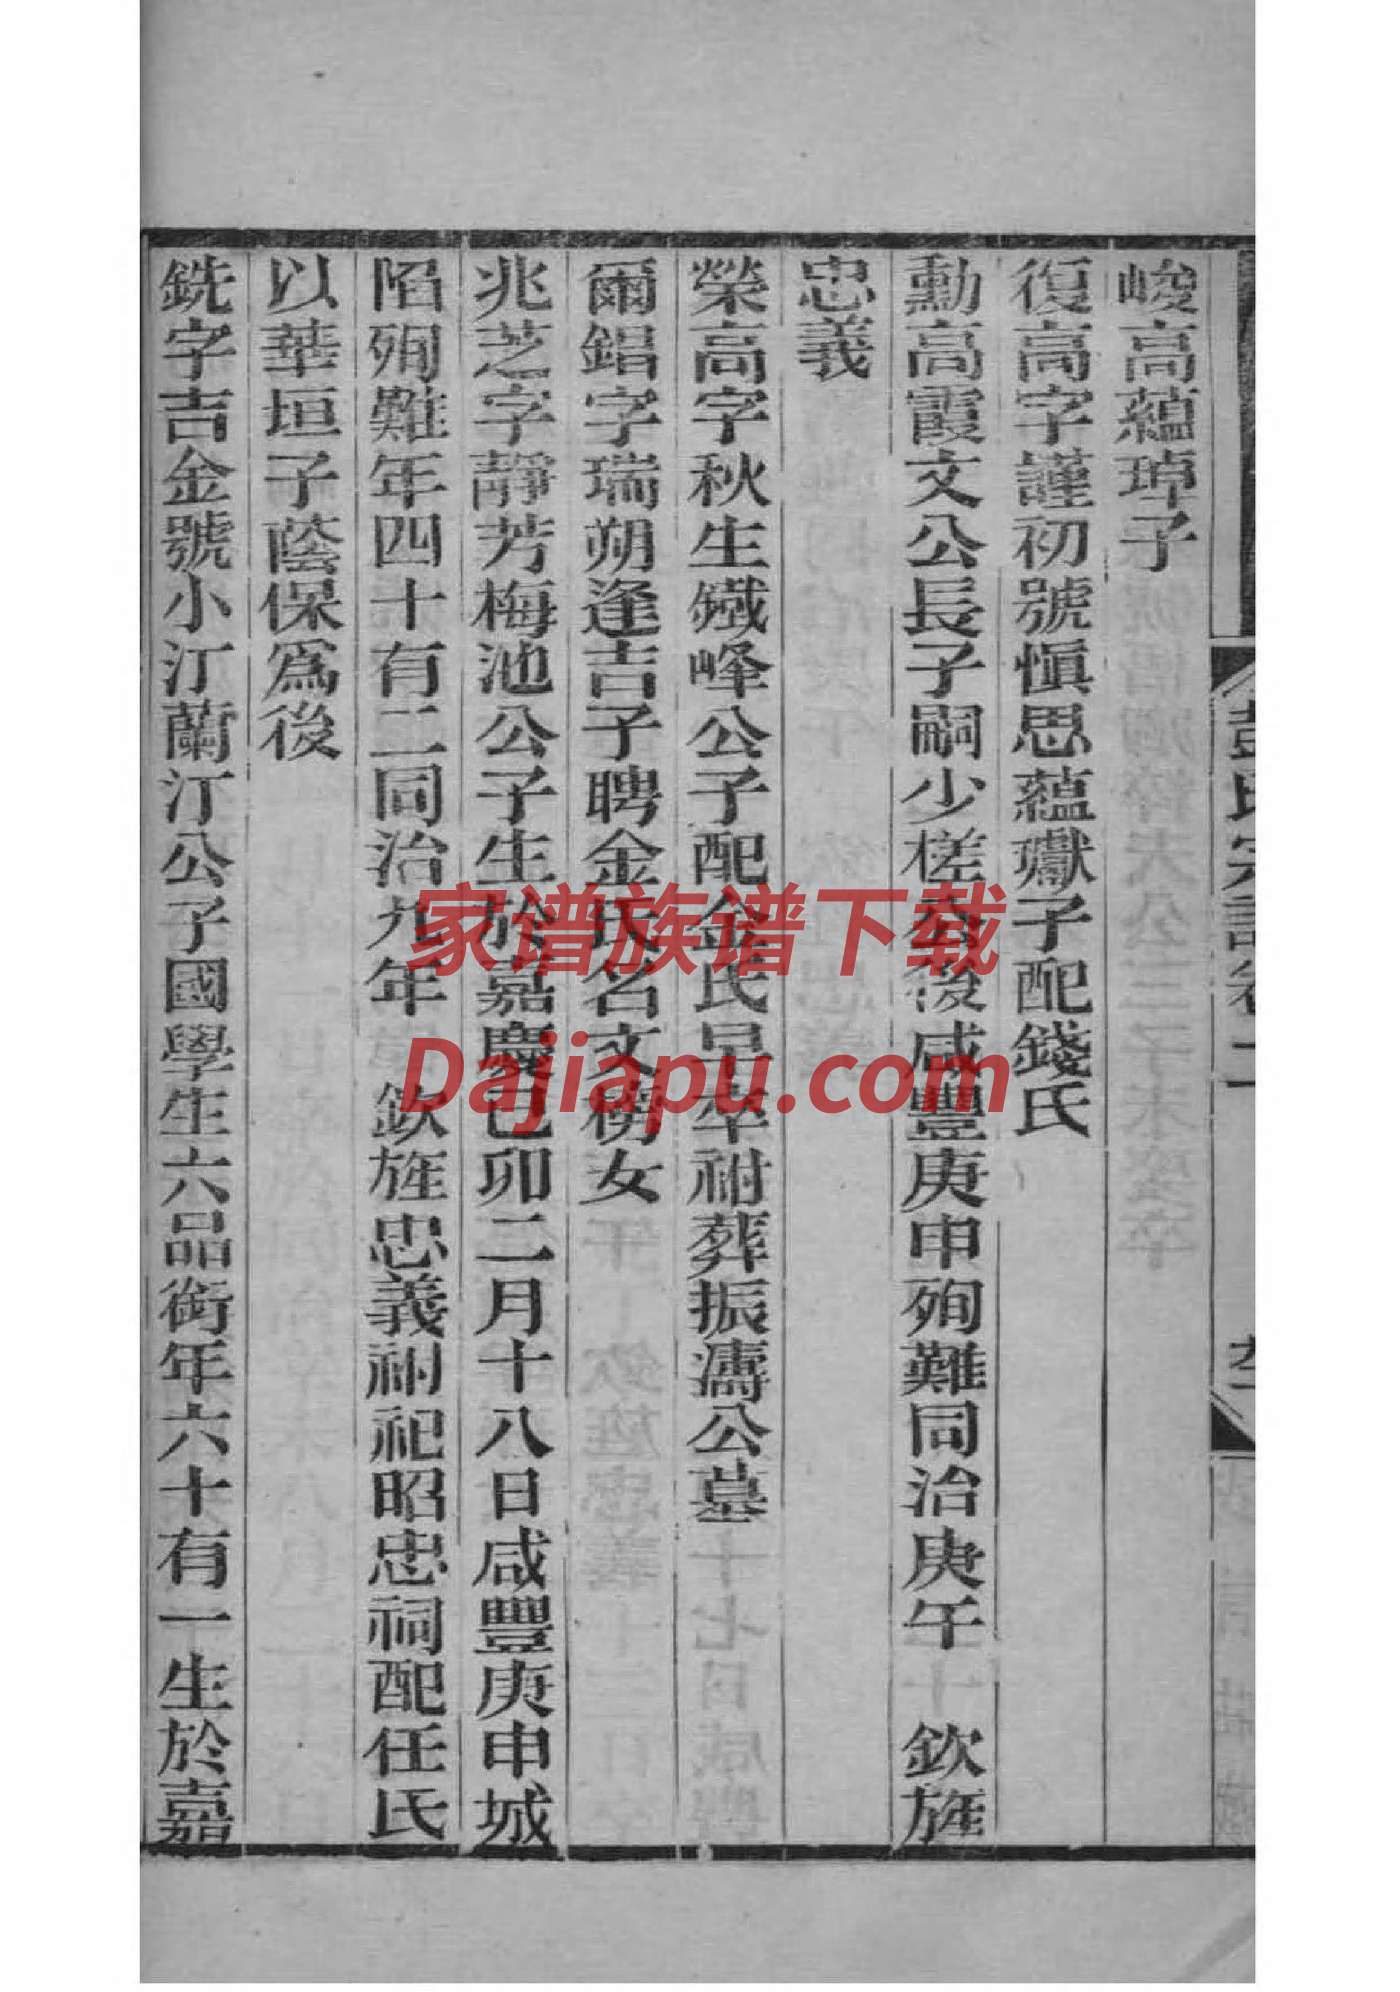 峻高蘊璋子
復高字謹初號愼思蘊瓛子配錢氏
勳高霞文公長子嗣少槎公後咸豐庚申殉難同治庚午 欽旌
忠義
榮高字秋生鐵峰公子配金氏早卒祔葬振濤公墓
爾錩字瑞朔逢吉子聘金氏名文榜女
兆芝字靜芳梅池公子生於嘉慶己卯二月十八日咸豐庚申城
陷殉難年四十有二同治九年 欽旌忠義祔祀昭忠祠配任氏
以華垣子蔭保爲後
銑字吉金號小汀蘭汀公子國學生六品銜年六十有一生於嘉
家谱族谱下载
Dajiapu.com